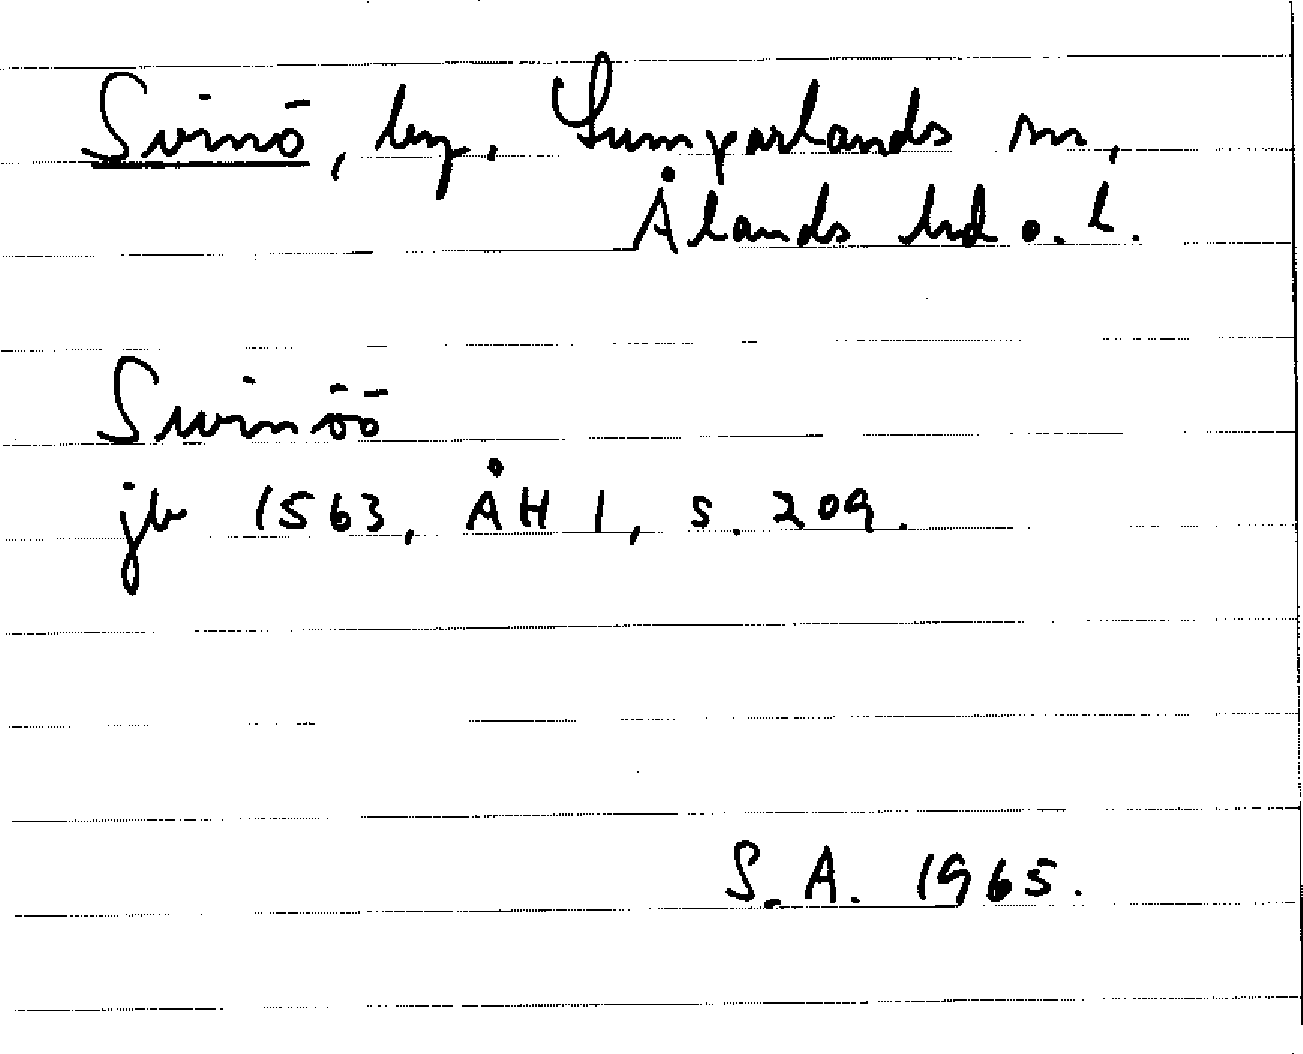 Svinö, by, Lumparlands sn,
Ålands hd o. l.
Swinöö
jb 1563, ÅH 1, s. 209.
S.A. 1965.